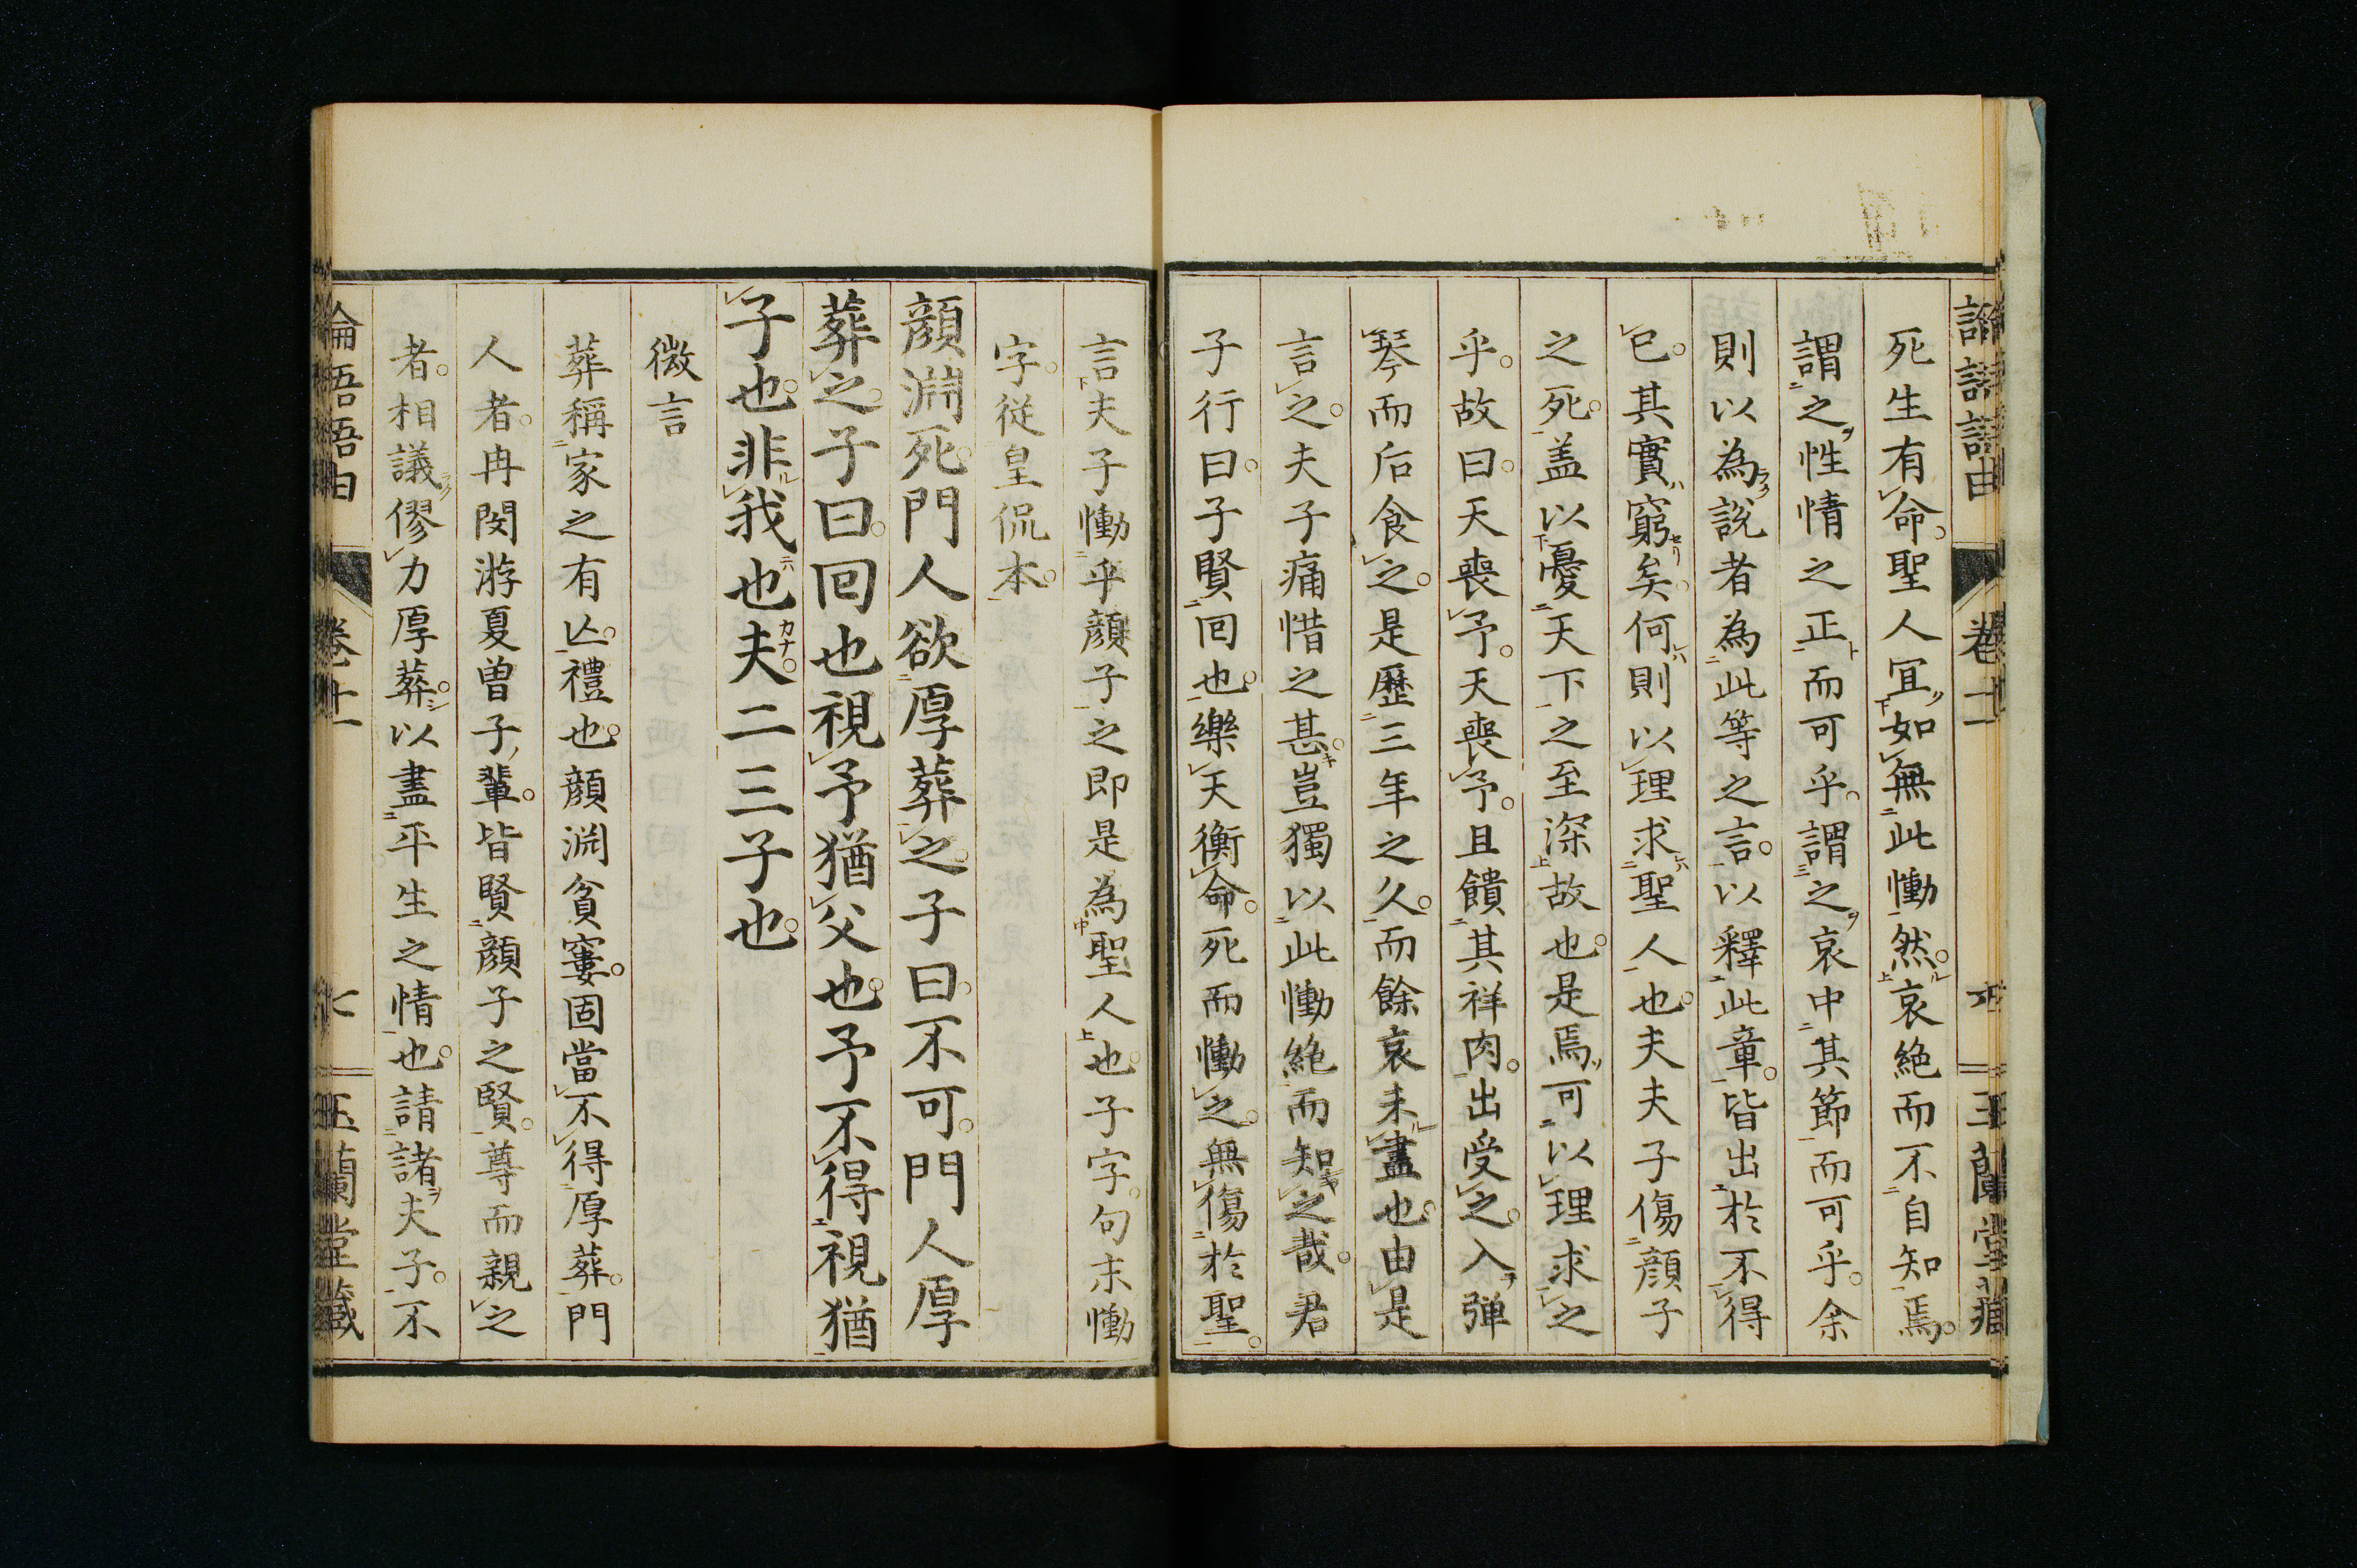 論語語由 卷十一 玉蘭堂藏
死生有命聖人冝如無此慟然哀絶而不自知焉
謂之性情之正而可乎謂之哀中其節而可乎余
則以為說者為此等之言以釋此章皆出於不得
已其實窮矣何則以理求聖人也夫夫子傷顔子
之死盖以憂天下之至深故也是焉可以理求之
乎故曰天喪予天喪予且饋其祥肉出受之入弾
琴而后食之是歷三年之久而餘哀未盡也由是
言之夫子痛惜之甚豈獨以此慟絶而知之哉君
子行曰子賢回也樂天衡命死而慟之無傷於聖
言夫子慟乎顔子之即是為聖人也子字句末慟
字從皇侃本
顔淵死門人欲厚葬之子曰不可門人厚
葬之子曰回也視予猶父也予不得視猶
子也非我也夫二三子也
微言
葬稱家之有亾禮也顔淵貧窶固當不得厚葬門
人者冉閔游夏曽子輩皆賢顔子之賢尊而親之
者相議僇力厚葬以盡平生之情也請諸夫子不
論語語由 卷十一 七 玉蘭堂藏